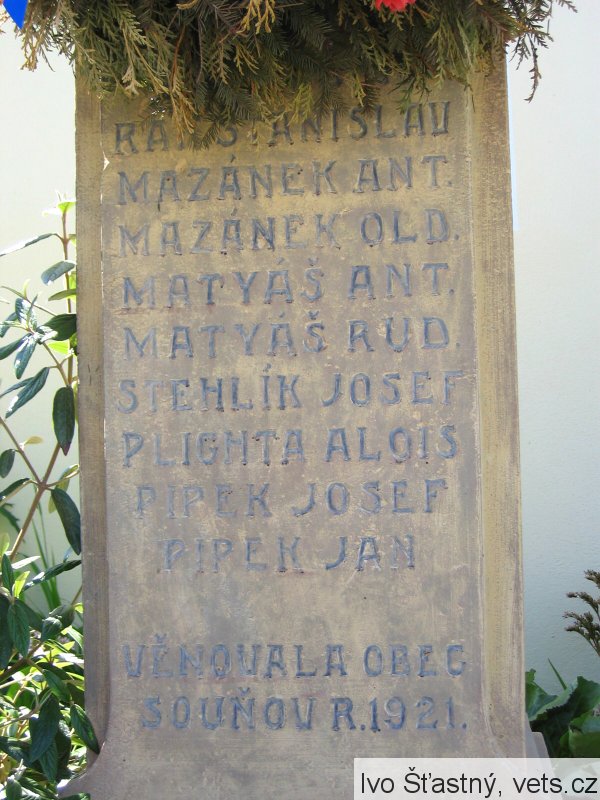 STANISLAV
MAZÁNEK ANT.
MAZÁNEK OLD.
MATYÁŠ ANT.
MATYÁŠ RUD.
STEHLÍK JOSEF
PLIGHTA ALOIS
PIPEK JOSEF
PIPEK JAN
VĚNOVALA OBEC
SOUŇOV R.1921.
Ivo Šťastný, vets.cz